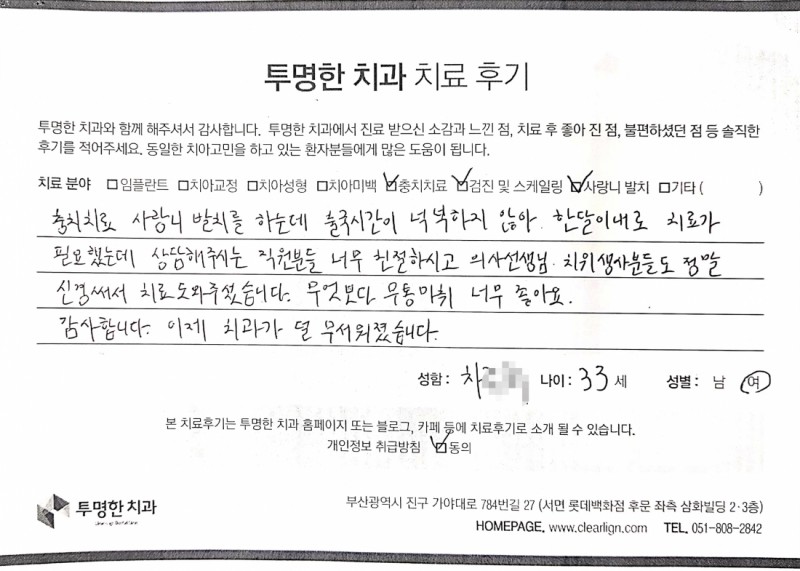 투명한 치과 치료 후기
투명한 치과와 함께 해주셔서 감사합니다. 투명한 치과에서 진료 받으신 소감과 느낀 점, 치료 후 좋아 진 점, 불편하셨던 점 등 솔직한
후기를 적어주세요. 동일한 치아고민을 하고 있는 환자분들에게 많은 도움이 됩니다.
치료 분야 □임플란트 □치아교정 □치아성형 □치아미백 ☑충치치료 ☑검진 및 스케일링 ☑사랑니 발치 □기타 ( )
충치치료 사랑니 발치를 하는데 출국시간이 넉넉하지 않아 한달이내로 치료가
필요했는데 상담해주시는 직원분들 너무 친절하시고 의사선생님, 치위생사분들도 정말
신경써서 치료도와주셨습니다. 무엇보다 무통마취 너무 좋아요.
감사합니다. 이제 치과가 덜 무서워졌습니다.
성함 : 차 나이 : 33 세 성별 : 남 여
본 치료후기는 투명한 치과 홈페이지 또는 블로그, 카페 등에 치료후기로 소개 될 수 있습니다.
개인정보 취급방침 ☑동의
투명한 치과
부산광역시 진구 가야대로 784번길 27 (서면 롯데백화점 후문 좌측 삼화빌딩 2·3층)
HOMEPAGE. www.clearlign.com TEL. 051-808-2842